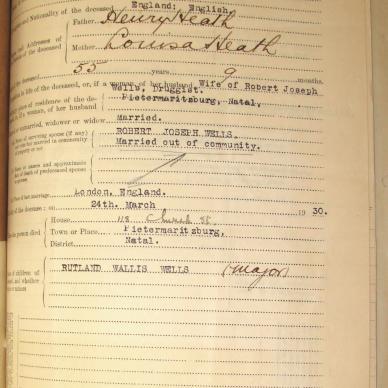 and Nationality of the deceased England; English,
Father, Henry Heath
and Addresses of
of the deceased
Mother, Louisa Heath
deceased 55 years, 9 months.
in life of the deceased, or, if a woman, of her husband Wife of Robert Joseph
Wells, Druggist.
place of residence of the de-
if a woman, of her husband Pietermaritzburg, Natal,
or unmarried, widower or widow Married.
of surviving spouse (if any) ROBERT JOSEPH WELLS.
not married in community
of property or not Married out of community.
or names and approximate
date of death of predeceased spouse
Place of last marriage London, England.
of the decease; on 24th. March 1930.
House 118 Church St.
person died Town or Place Pietermaritzburg,
District Natal.
of children of
and whether
or minors
RUTLAND WALLIS WELLS (major)